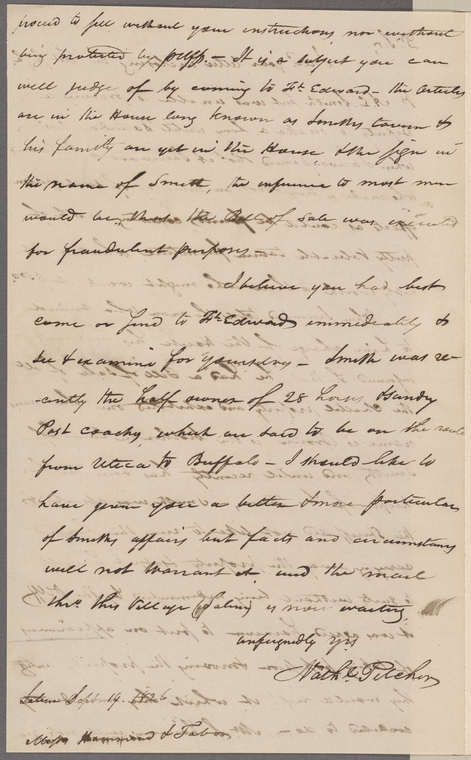 proceed to sell without your instructions nor without
being protected by plffs. – It is a subject you can
well judge of by coming to Ft. Edward – the articles
are in the House long known as Smiths tavern &
his family are yet in the House & the sign in
the name of Smith, the inference to most men
would be, that the Bill of Sale was executed
for fraudulent purposes –
I believe you had best
come or send to Ft. Edward immediately &
see & examine for yourselves – Smith was re-
-cently the half owner of 28 horses & sundry
Post coaches which are said to be on the route
from Utica to Buffalo – I should like to
have given you a better & more particular
of Smiths affairs but facts and circumstances
will not warrant it and the mail
thro. this Village (Salem) is now waiting
unfeignedly Yrs
Nathl. Pitcher
Salem Sept. 19. 1826
Messrs Hammond & Tabor